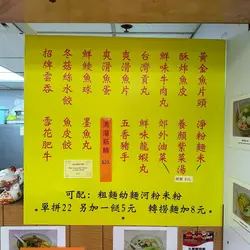 黃金魚片頭
酥炸魚皮
鮮味牛肉丸
台灣貢丸
爽滑魚片
爽滑魚蛋
鮮鯪魚球
冬菇絲水餃
招牌雲吞
淨粉麵米
養顏紫菜
郊外油菜
鮮味龍蝦丸
五香豬手
墨魚丸
魚皮餃
雪花肥牛
可配：粗麵幼麵河粉米粉
單拼22 另加一餸5元 轉撈麵加8元。